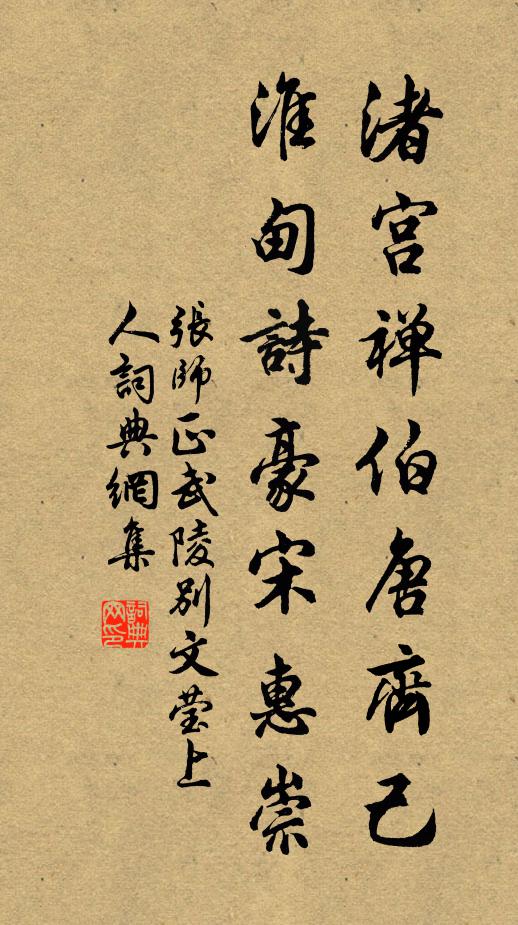 渚宮禅伯唐齊己
淮甸詩豪宋惠崇
張師正武陵別文莹上
人詞典網集
詞典
网印